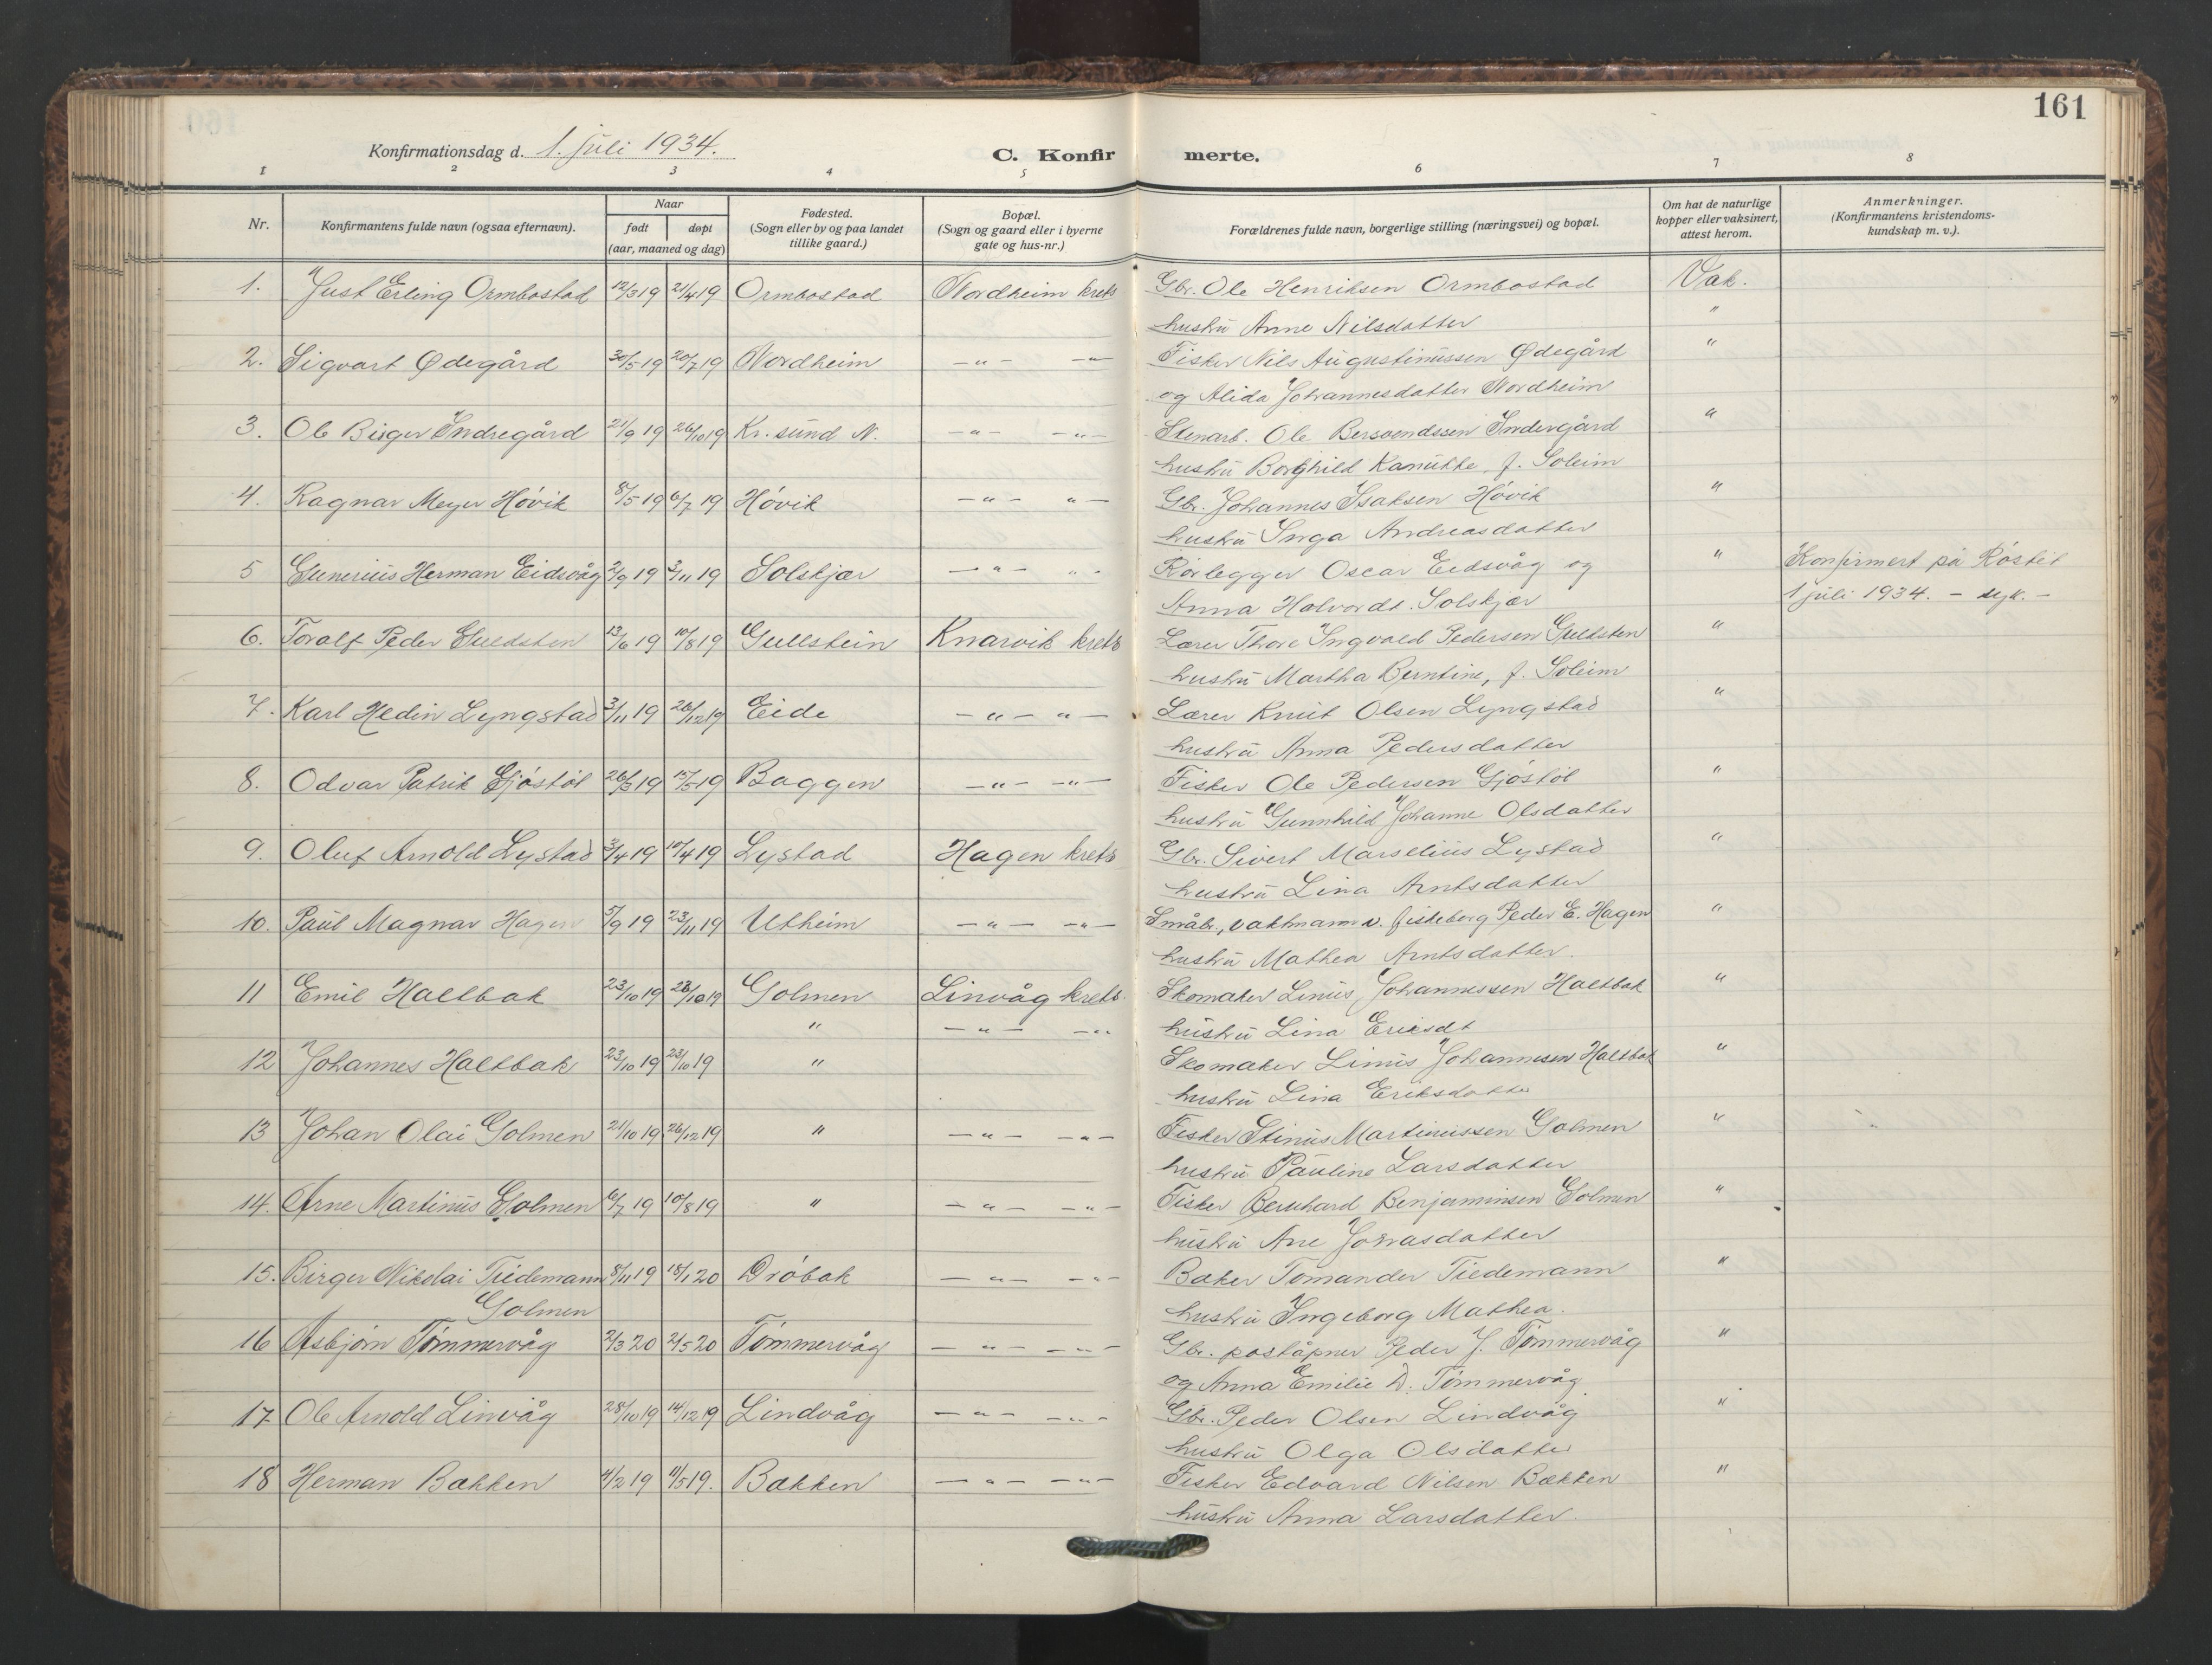 161
Konfirmationsdag d. 1. juli 1934.
C. Konfirmerte.
1 2 3 4 5 6 7 8
Nr.
Konfirmantens fulde navn (ogsaa efternavn).
Naar
født døpt
(aar, maaned og dag)
Fødested.
(Sogn eller by og paa landet
tillike gaard.)
Bopæl.
(Sogn og gaard eller i byerne
gate og hus-nr.)
Forældrenes fulde navn, borgerlige stilling (næringsvei) og bopæl.
Om hat de naturlige
kopper eller vaksinert,
attest herom.
Anmerkninger.
(Konfirmantens kristendoms-
kundskap m. v.).
1. Just Erling Ormbostad 12/3 19 21/4 19 Ormbostad Nordheim krets Gbr. Ole Henriksen Ormbostad Vak.
hustru Anne Nilsdatter "
2. Sigvart Ødegård 30/5 19 20/7 19 Nordheim — " — — " Fisker Nils Augustinussen Ødegård "
og Alida Johannesdatter Nordheim
3. Ole Birger Indregård 21/9 19 26/10 19 Kr. sund N. — " — — " — Stenarb. Ole Bersvendssen Indergård "
hustru Borghild Kanutte, f. Soleim
4. Ragnar Meyer Hóvik 8/5 19 6/7 19 Hóvik — " — " — Gbr. Johannes Isaksen Hóvik "
hustru Inga Andreasdatter
5 Gunerius Herman Eidsvåg 2/9 19 3/11 19 Solskjær — " — " Rórlegger Oscar Eidsvåg og " Konfirmert på Róstet
Anna Halvordt. Solskjær 1 juli 1934. – syk. –
6. Toralf Peder Guldsten 13/6 19 10/8 19 Gullstein Knarvik krets Lærer Thore Ingvald Pedersen Guldsten "
hustru Martha Berntine, f. Soleim
7. Karl Hedin Lyngstad 3/11 19 26/12 19 Eide — " — " — Lærer Knut Olsen Lyngstad "
hustru Anna Pedersdatter
8. Odvar Patrik Gjóstól 26/3 19 15/5 19 Baggen — " — — " — Fisker Ole Pedersen Gjóstól "
hustru Gunnhild Johanne Olsdatter
9. Oluf Arnold Lystad 3/4 19 10/4 19 Lystad Hagen krets Gbr. Sivert Marselius Lystad "
hustru Lina Arntsdatter
10. Paul Magnar Hagen 5/9 19 23/11 19 Utheim — " — — " — Småbr., vaktmann v. fiskeborg Peder E. Hagen "
hustru Mathea Arntsdatter.
11 Emil Haltbak 23/10 19 28/10 19 Golmen Linvåg krets. Skomaker Linus Johannessen Haltbak "
" — " — — " hustru Lina Ericsdt
12 Johannes Haltbak 23/10 19 23/10 19 " Skomaker Linus Johannesen Haltbak "
hustru Lina Eriksdatter
13 Johan Olai Golmen 21/10 19 26/12 19 " — " — — " — Fisker Stinus Martinussen Golmen "
hustru Pauline Larsdatter
14. Arne Martinus Golmen 6/7 19 10/8 19 " — " — — " — Fisker Bernhard Benjaminsen Golmen "
hustru Ane Jonasdatter
15. Birger Nikolai Tiedemann 8/11 19 18/1 20 Dróbak — " — — " — Baker Tomander Tiedemann "
Golmen hustru Ingeborg Mathea.
16 Asbjórn Tómmervåg 2/3 20 2/5 20 Tómmervåg — " — — " — Gbr. poståpner Peder J. Tómmervåg "
og Anna Emilie D. Tómmervåg
17 Ole Arnold Linvåg 28/10 19 14/12 19 Lindvåg — " — — " — Gbr. Peder Olsen Lindvåg "
hustru Olga Olsdatter
18 Herman Bækken 4/2 19 11/5 19. Bækken — " — — " — Fisker Edvard Nilsen Bækken "
hustru Anna Larsdatter.